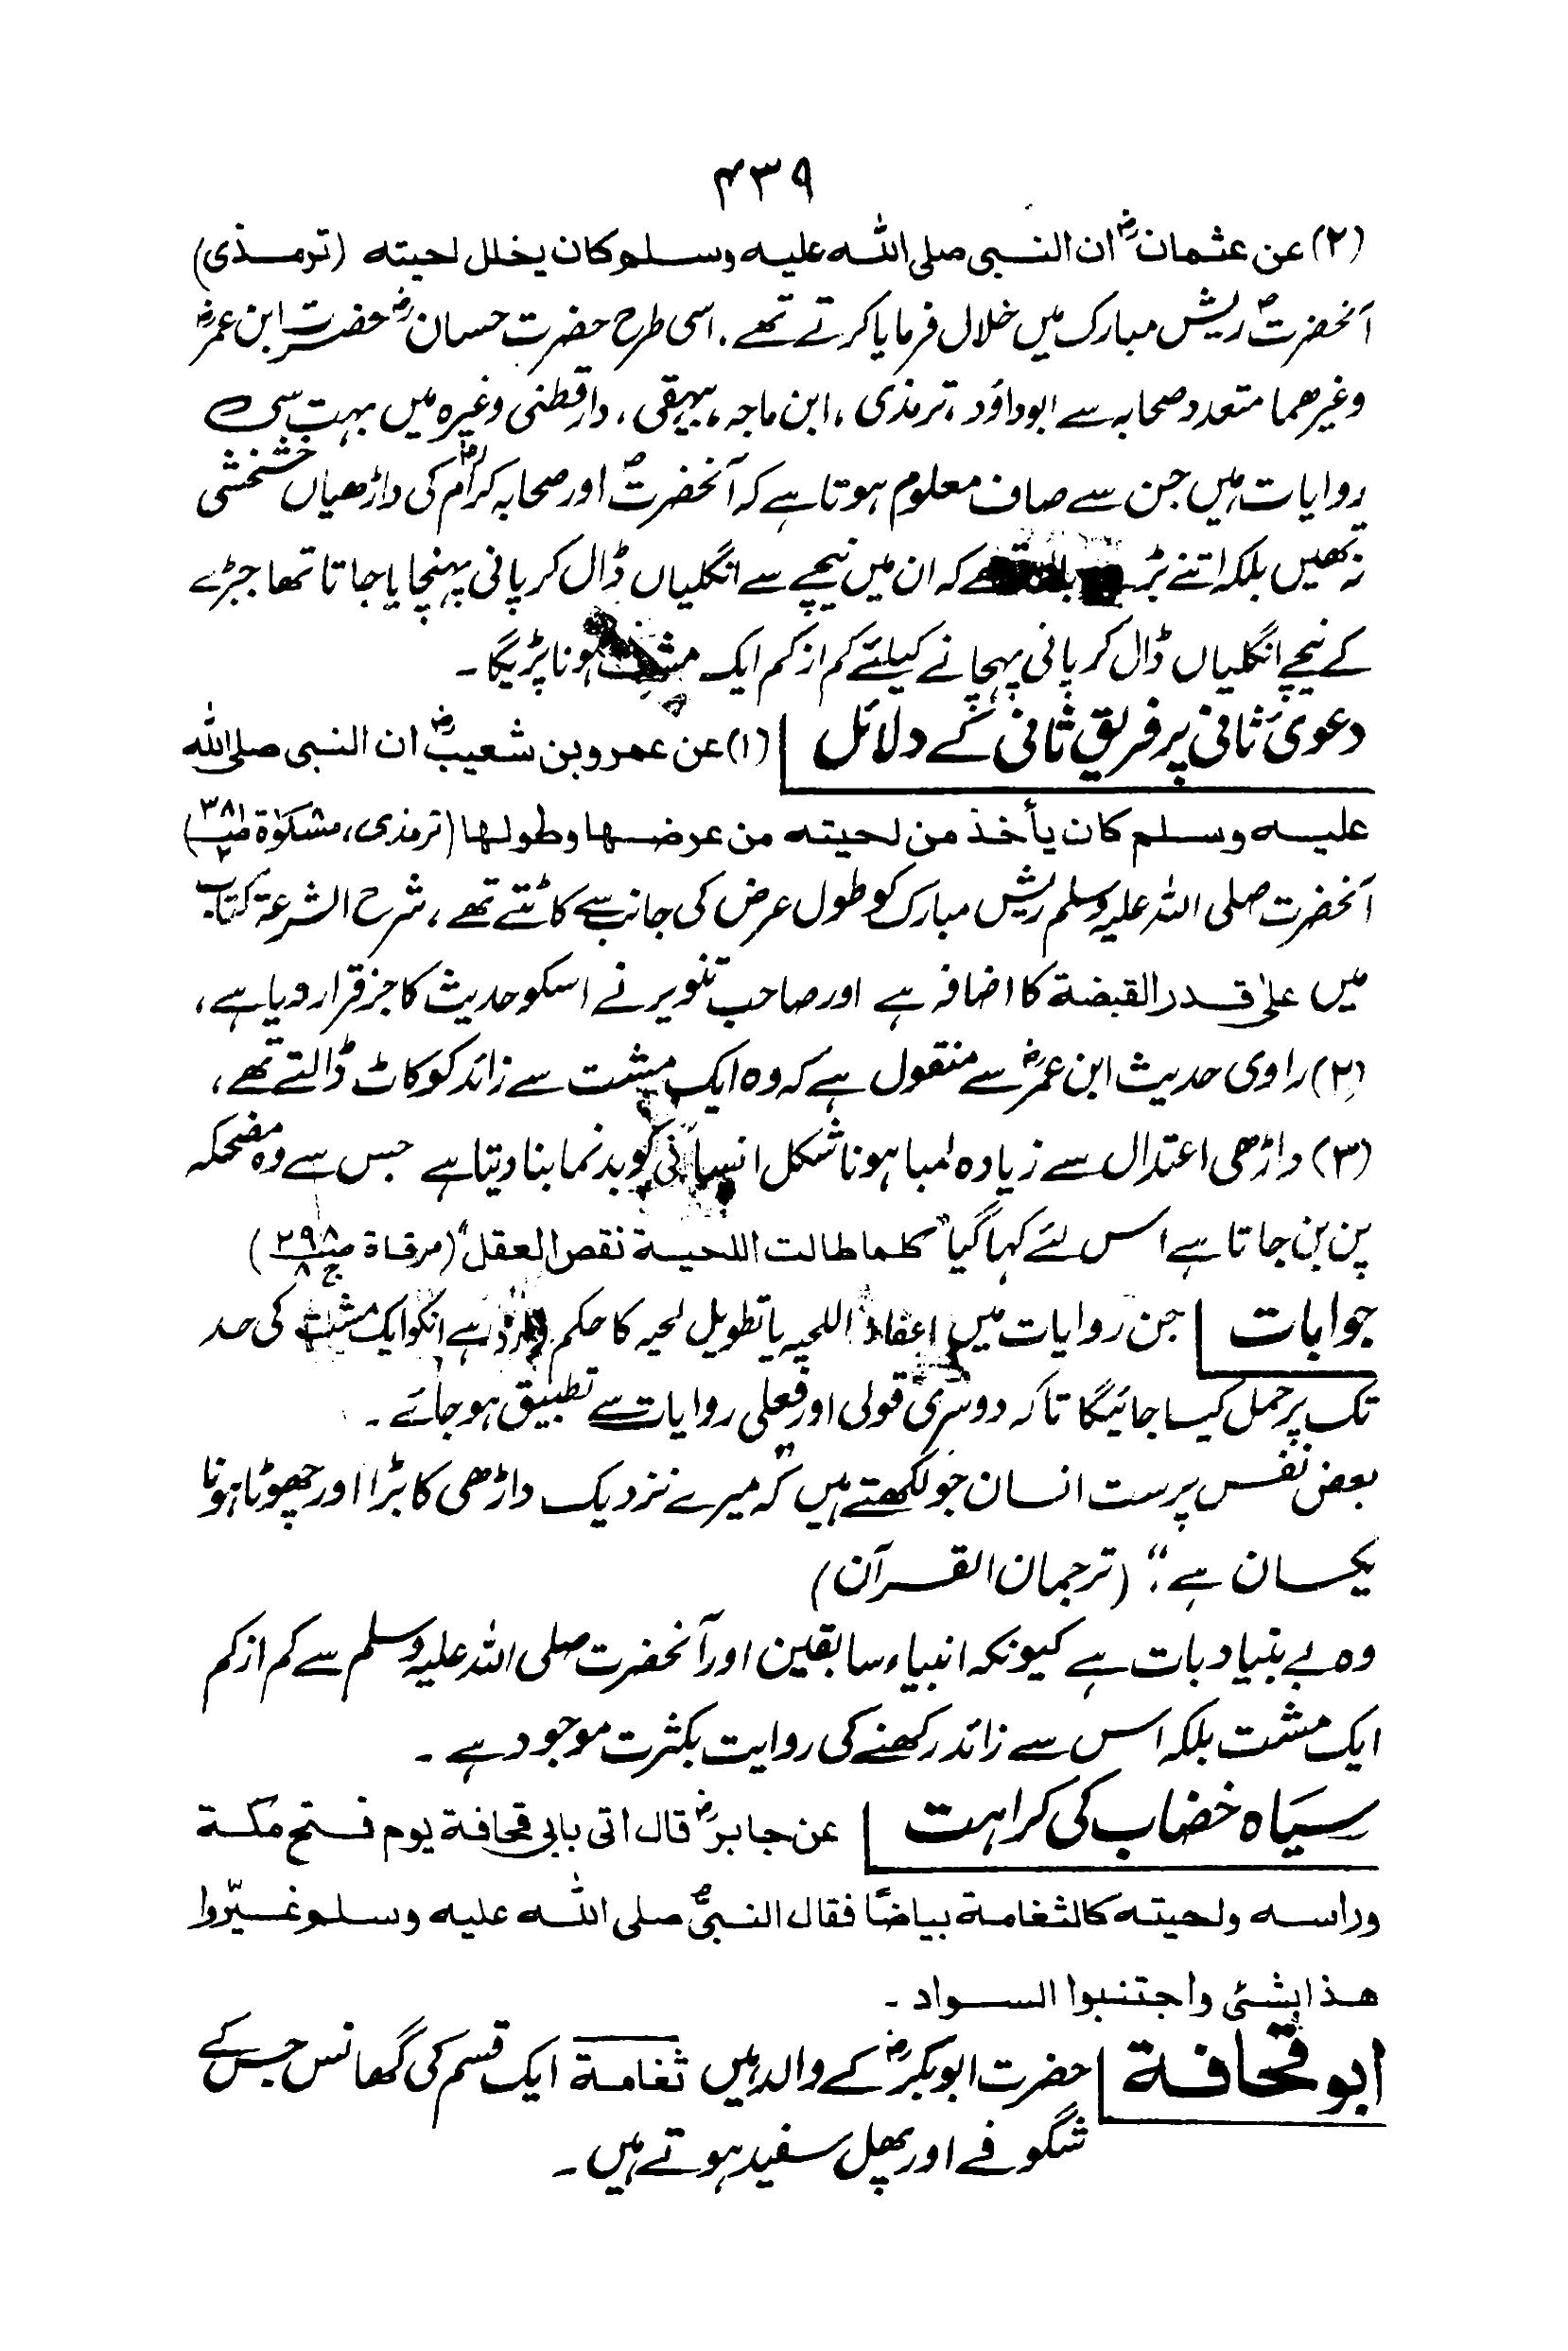 ۴۳۹
(۲) عن عثمانؓ ان النبی صلی اللہ علیہ وسلم کان یخلل لحیتہ (ترمذی)
آنحضرتؐ ریش مبارک میں خلال فرمایا کرتے تھے۔ اسی طرح حضرت حسانؓ حضرت ابن عمرؓ
وغیرھما متعدد صحابہ سے ابوداؤد، ترمذی، ابن ماجہ، بیہقی، دارقطنی وغیرہ میں بہت سی
روایات ہیں جن سے صاف معلوم ہوتا ہے کہ آنحضرتؐ اور صحابہ کرامؓ کی داڑھیاں خشخشی
نہ تھیں بلکہ اتنے بڑے کہ ان میں نیچے سے انگلیاں ڈال کر پانی پہنچایا جاتا تھا جبڑے
کے نیچے انگلیاں ڈال کر پانی پہچانے کیلئے کم از کم ایک مشت ہونا پڑیگا۔
دعویٰ ثانی پر فریق ثانی کے دلائل | (۱) عن عمرو بن شعیبؓ ان النبی صلی اللہ
علیہ وسلم کان یأخذ من لحیتہ من عرضہا وطولہا (ترمذی، مشکوٰۃ ص ۳۸۱ ج ۲)
آنحضرت صلی اللہ علیہ وسلم ریش مبارک کو طول عرض کی جانب سے کاٹتے تھے، شرح الشرعۃ کتاب
میں علیٰ قدر القبضۃ کا اضافہ ہے اور صاحب تنویر نے اسکو حدیث کا جز قرار دیا ہے،
(۲) راوی حدیث ابن عمرؓ سے منقول ہے کہ وہ ایک مشت سے زائد کو کاٹ ڈالتے تھے،
(۳) داڑھی اعتدال سے زیادہ لمبا ہونا شکل انسانی کو بدنما بنا دیتا ہے جس سے وہ مضحکہ
پن بن جاتا ہے اس لئے کہا گیا "کلما طالت اللحیۃ نقص العقل" (مرقاۃ ص ۲۹۸ ج ۸)
جوابات | جن روایات میں اعفاء اللحیہ یا تطویل لحیہ کا حکم وارد ہے انکو ایک مشت کی حد
تک پر حمل کیا جائیگا تاکہ دوسری قولی اور فعلی روایات سے تطبیق ہو جائے۔
بعض نفس پرست انسان جو لکھتے ہیں "کہ میرے نزدیک داڑھی کا بڑا اور چھوٹا ہونا
یکسان ہے۔" (ترجمان القرآن)
وہ بے بنیاد بات ہے کیونکہ انبیاء سابقین اور آنحضرت صلی اللہ علیہ وسلم سے کم از کم
ایک مشت بلکہ اس سے زائد رکھنے کی روایت بکثرت موجود ہے۔
سیاہ خضاب کی کراہت | عن جابرؓ قال اتی بابی قحافۃ یوم فتح مکۃ
وراسہ ولحیتہ کالثغامۃ بیاضًا فقال النبیؐ صلی اللہ علیہ وسلم غیّروا
ھذا بشئی واجتنبوا السواد۔
ابو قحافۃ | حضرت ابوبکرؓ کے والد ہیں ثغامۃ ایک قسم کی گھانس جس کے
شگوفے اور پھل سفید ہوتے ہیں۔